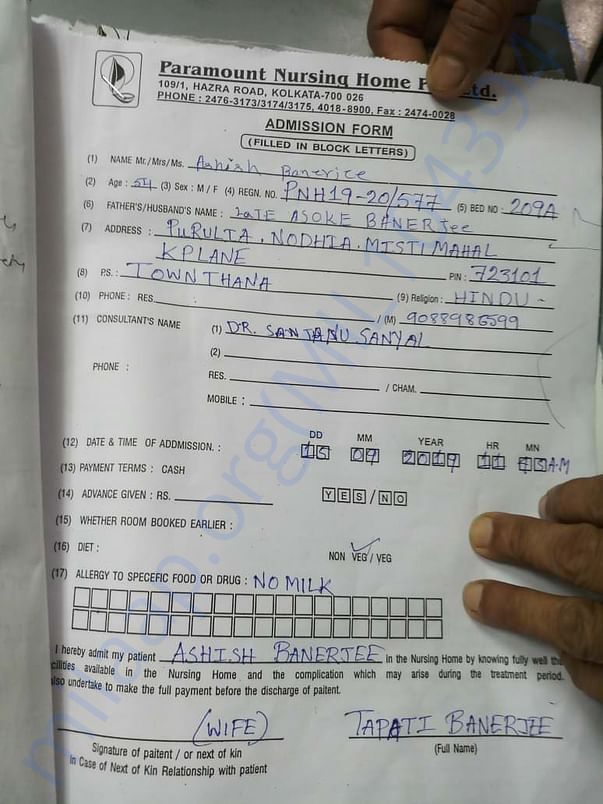 Paramount Nursing Home P Ltd.
109/1, HAZRA ROAD, KOLKATA-700 026
PHONE : 2476-3173/3174/3175, 4018-8900, Fax : 2474-0028
ADMISSION FORM
(FILLED IN BLOCK LETTERS)
(1) NAME Mr./Mrs/Ms. Ashish Banerjee
(2) Age : 54 (3) Sex : M / F (4) REGN. NO. PNH19-20/577 (5) BED NO : 209A
(6) FATHER'S/HUSBAND'S NAME : LATE ASOKE BANERJee
(7) ADDRESS : PURULIA, NODHIA. MISTI MAHAL
K P LANE
(8) P.S. : TOWN THANA PIN : 723101
(10) PHONE : RES. (9) Religion : HINDU -
(11) CONSULTANT'S NAME / (M) 9088986599
(1) DR. SANTANU SANYAL
(2)
PHONE : RES. / CHAM.
MOBILE :
DD MM YEAR HR MN
(12) DATE & TIME OF ADDMISSION. : 15 07 2019 11 A.M
(13) PAYMENT TERMS : CASH
(14) ADVANCE GIVEN : RS. YES / NO
(15) WHETHER ROOM BOOKED EARLIER :
(16) DIET : NON VEG / VEG
(17) ALLERGY TO SPECEFIC FOOD OR DRUG : NO MILK
I hereby admit my patient ASHISH BANERJEE in the Nursing Home by knowing fully well the
cilities available in the Nursing Home and the complication which may arise during the treatment period.
lso undertake to make the full payment before the discharge of paitent.
(WIFE) TAPATI BANERJEE
Signature of paitent / or next of kin (Full Name)
In Case of Next of Kin Relationship with patient